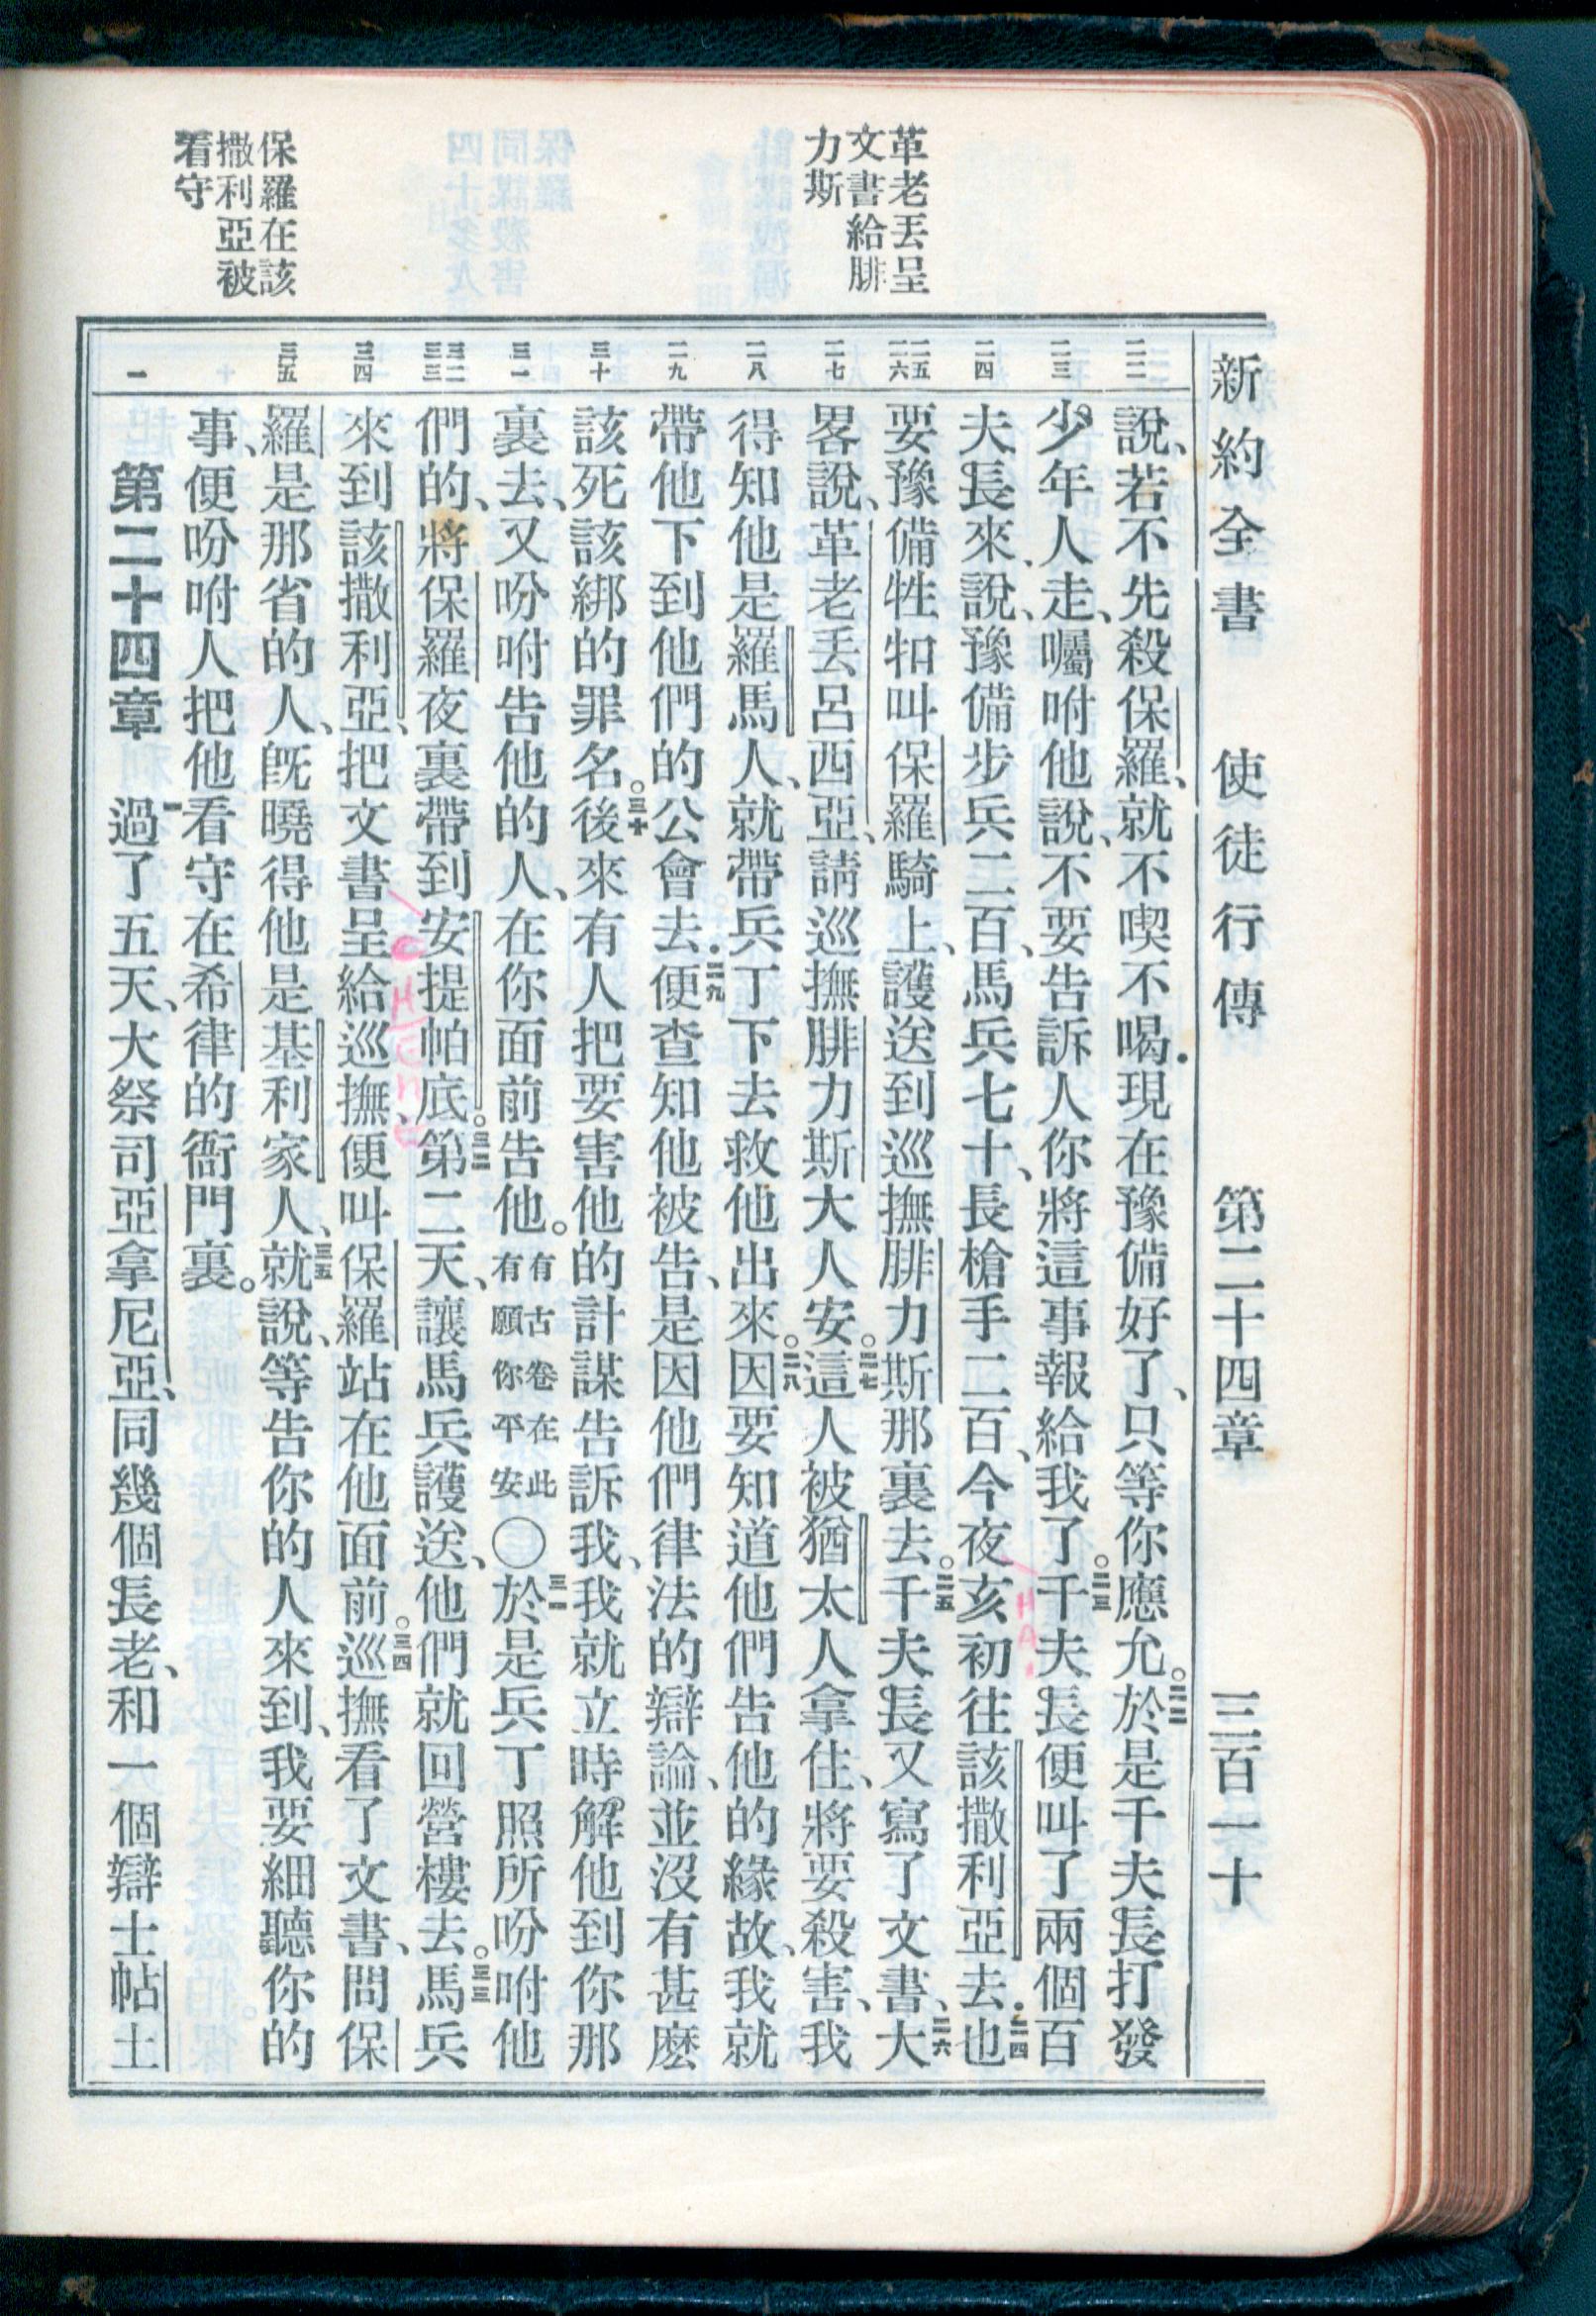 新約全書　使徒行傳　第二十四章　三百一十
革老丟呈
文書給腓
力斯
保羅在該
撒利亞被
看守
二二
二三
二四
二五
二六
二七
二八
二九
三十
三一
三二
三三
三四
三五
一
說、若不先殺保羅、就不喫不喝．現在豫備好了、只等你應允。二二於是千夫長打發
少年人走、囑咐他說、不要告訴人你將這事報給我了。二三千夫長便叫了兩個百
夫長來、說、豫備步兵二百、馬兵七十、長槍手二百、今夜亥初往該撒利亞去．二四也
要豫備牲口叫保羅騎上、護送到巡撫腓力斯那裏去。二五千夫長又寫了文書、二六大
畧說、革老丟呂西亞、請巡撫腓力斯大人安。二七這人被猶太人拿住、將要殺害、我
得知他是羅馬人、就帶兵丁下去救他出來。二八因要知道他們告他的緣故、我就
帶他下到他們的公會去．二九便查知他被告、是因他們律法的辯論、並沒有甚麼
該死該綁的罪名。三十後來有人把要害他的計謀告訴我、我就立時解他到你那
裏去、又吩咐告他的人、在你面前告他。有古卷在此有願你平安〇三一於是兵丁照所吩咐他
們的、將保羅夜裏帶到安提帕底。三二第二天、讓馬兵護送、他們就回營樓去。三三馬兵
來到該撒利亞、把文書呈給巡撫、便叫保羅站在他面前。三四巡撫看了文書、問保
羅是那省的人、旣曉得他是基利家人、三五就說、等告你的人來到、我要細聽你的
事、便吩咐人把他看守在希律的衙門裏。
第二十四章　一過了五天、大祭司亞拿尼亞、同幾個長老、和一個辯士帖土
HA
CHENE